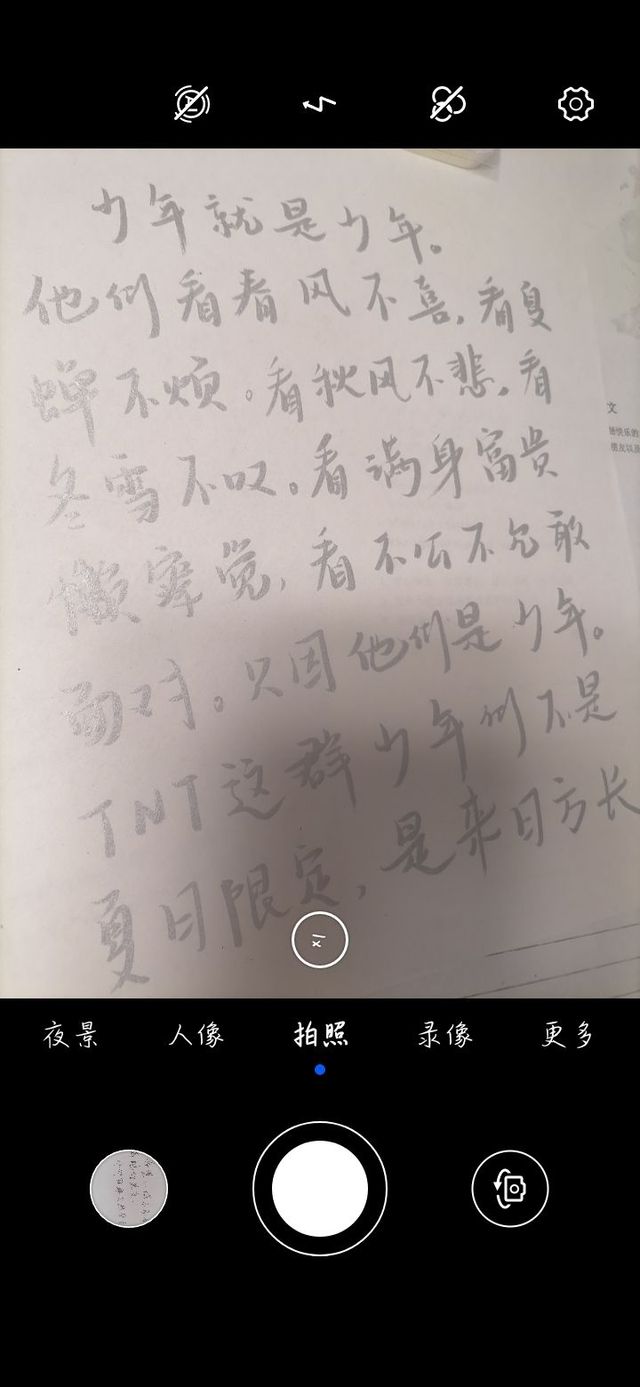 少年就是少年。
他们看春风不喜,看夏
蝉不烦。看秋风不悲,看
冬雪不叹。看满身富贵
懒察觉,看不公不允敢
面对。只因他们是少年。
TNT这群少年们不是
夏日限定,是来日方长
文
1x
夜景 人像 拍照 录像 更多